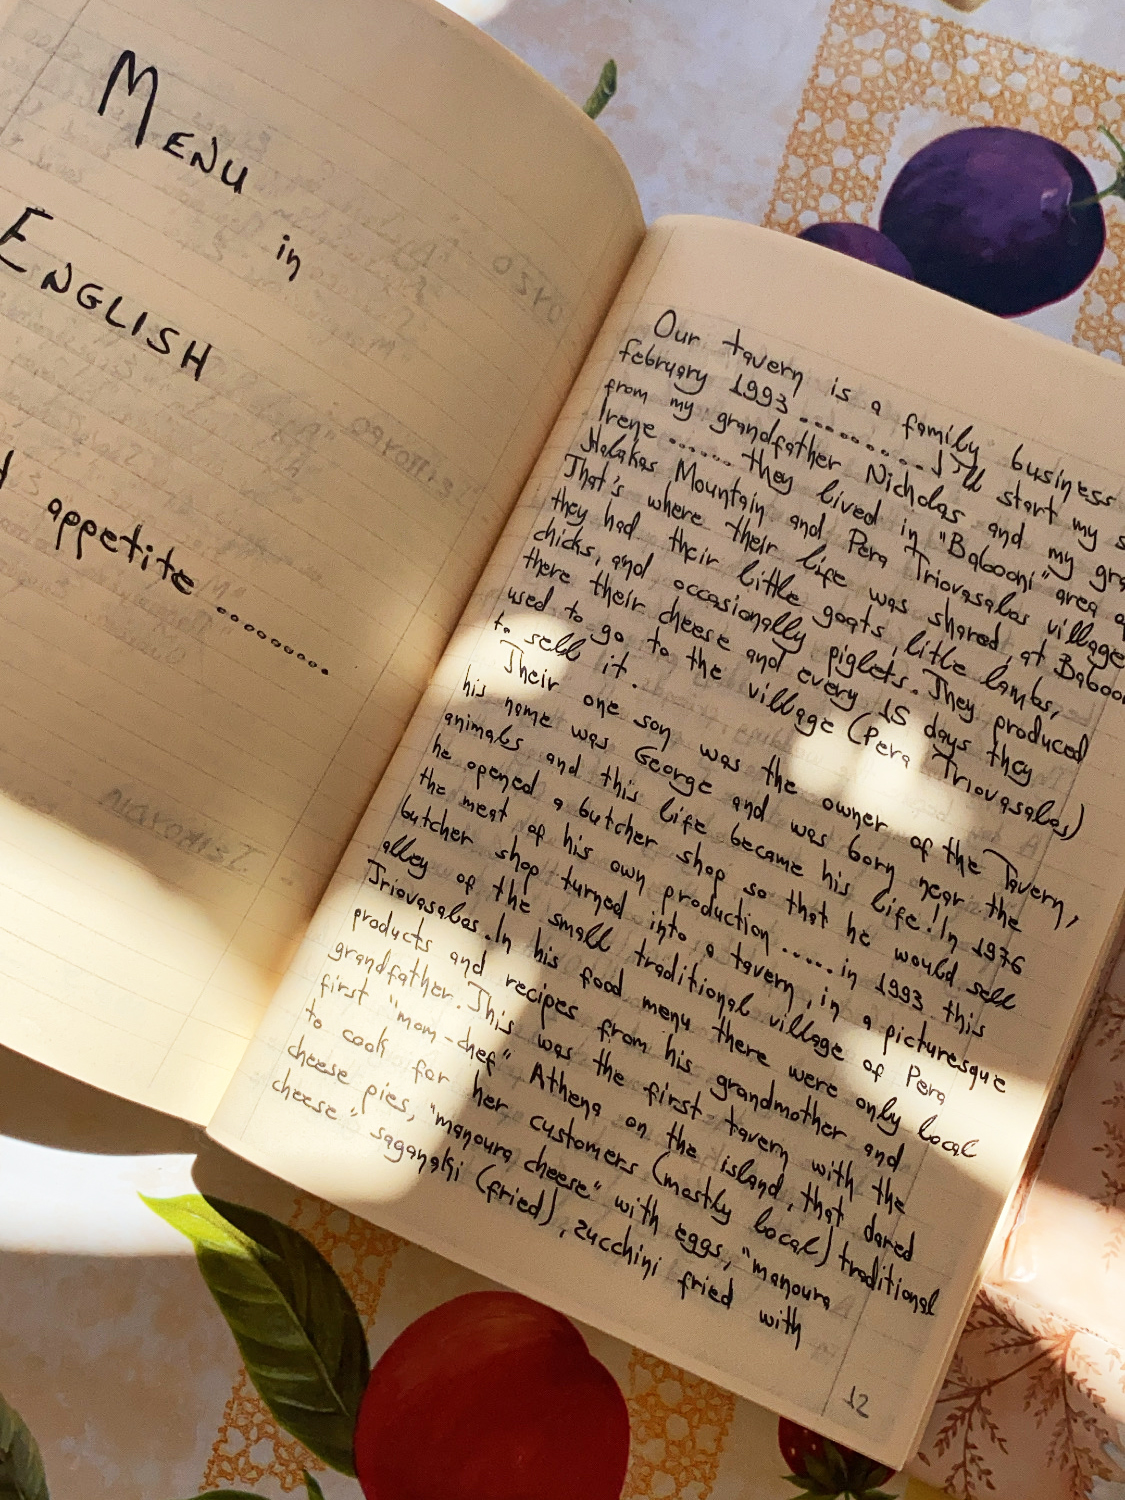 MENU
in
ENGLISH
appetite ..........
Our tavern is a family business
february 1993 .......... I'll start my
from my grandfather Nicholas and my
Irene ...... they lived in "Babooni" area
Halakas Mountain and Pera Triovasalos village
That's where their life was shared, at
they had their little goats, litle lambs,
chicks, and occasionally piglets. They produced
there their cheese and every 15 days they
used to go to the village (Pera Triovasalos)
to sell it.
Their one son was the owner of the Tavern,
his name was George and was born near the
animals and this life became his life! In 1976
he opened a butcher shop so that he would sell
the meat of his own production ......in 1993 this
butcher shop turned into a tavern, in a picturesque
alley of the small traditional village of Pera
Triovasalos. In his food menu there were only local
products and recipes from his grandmother and
grandfather. This was the first tavern with the
first "mom-chef" Athena on the island, that dared
to cook for her customers (mostly local) traditional
cheese pies, "manoura cheese" with eggs, "manoura
cheese" saganaki (fried), zucchini fried with
12